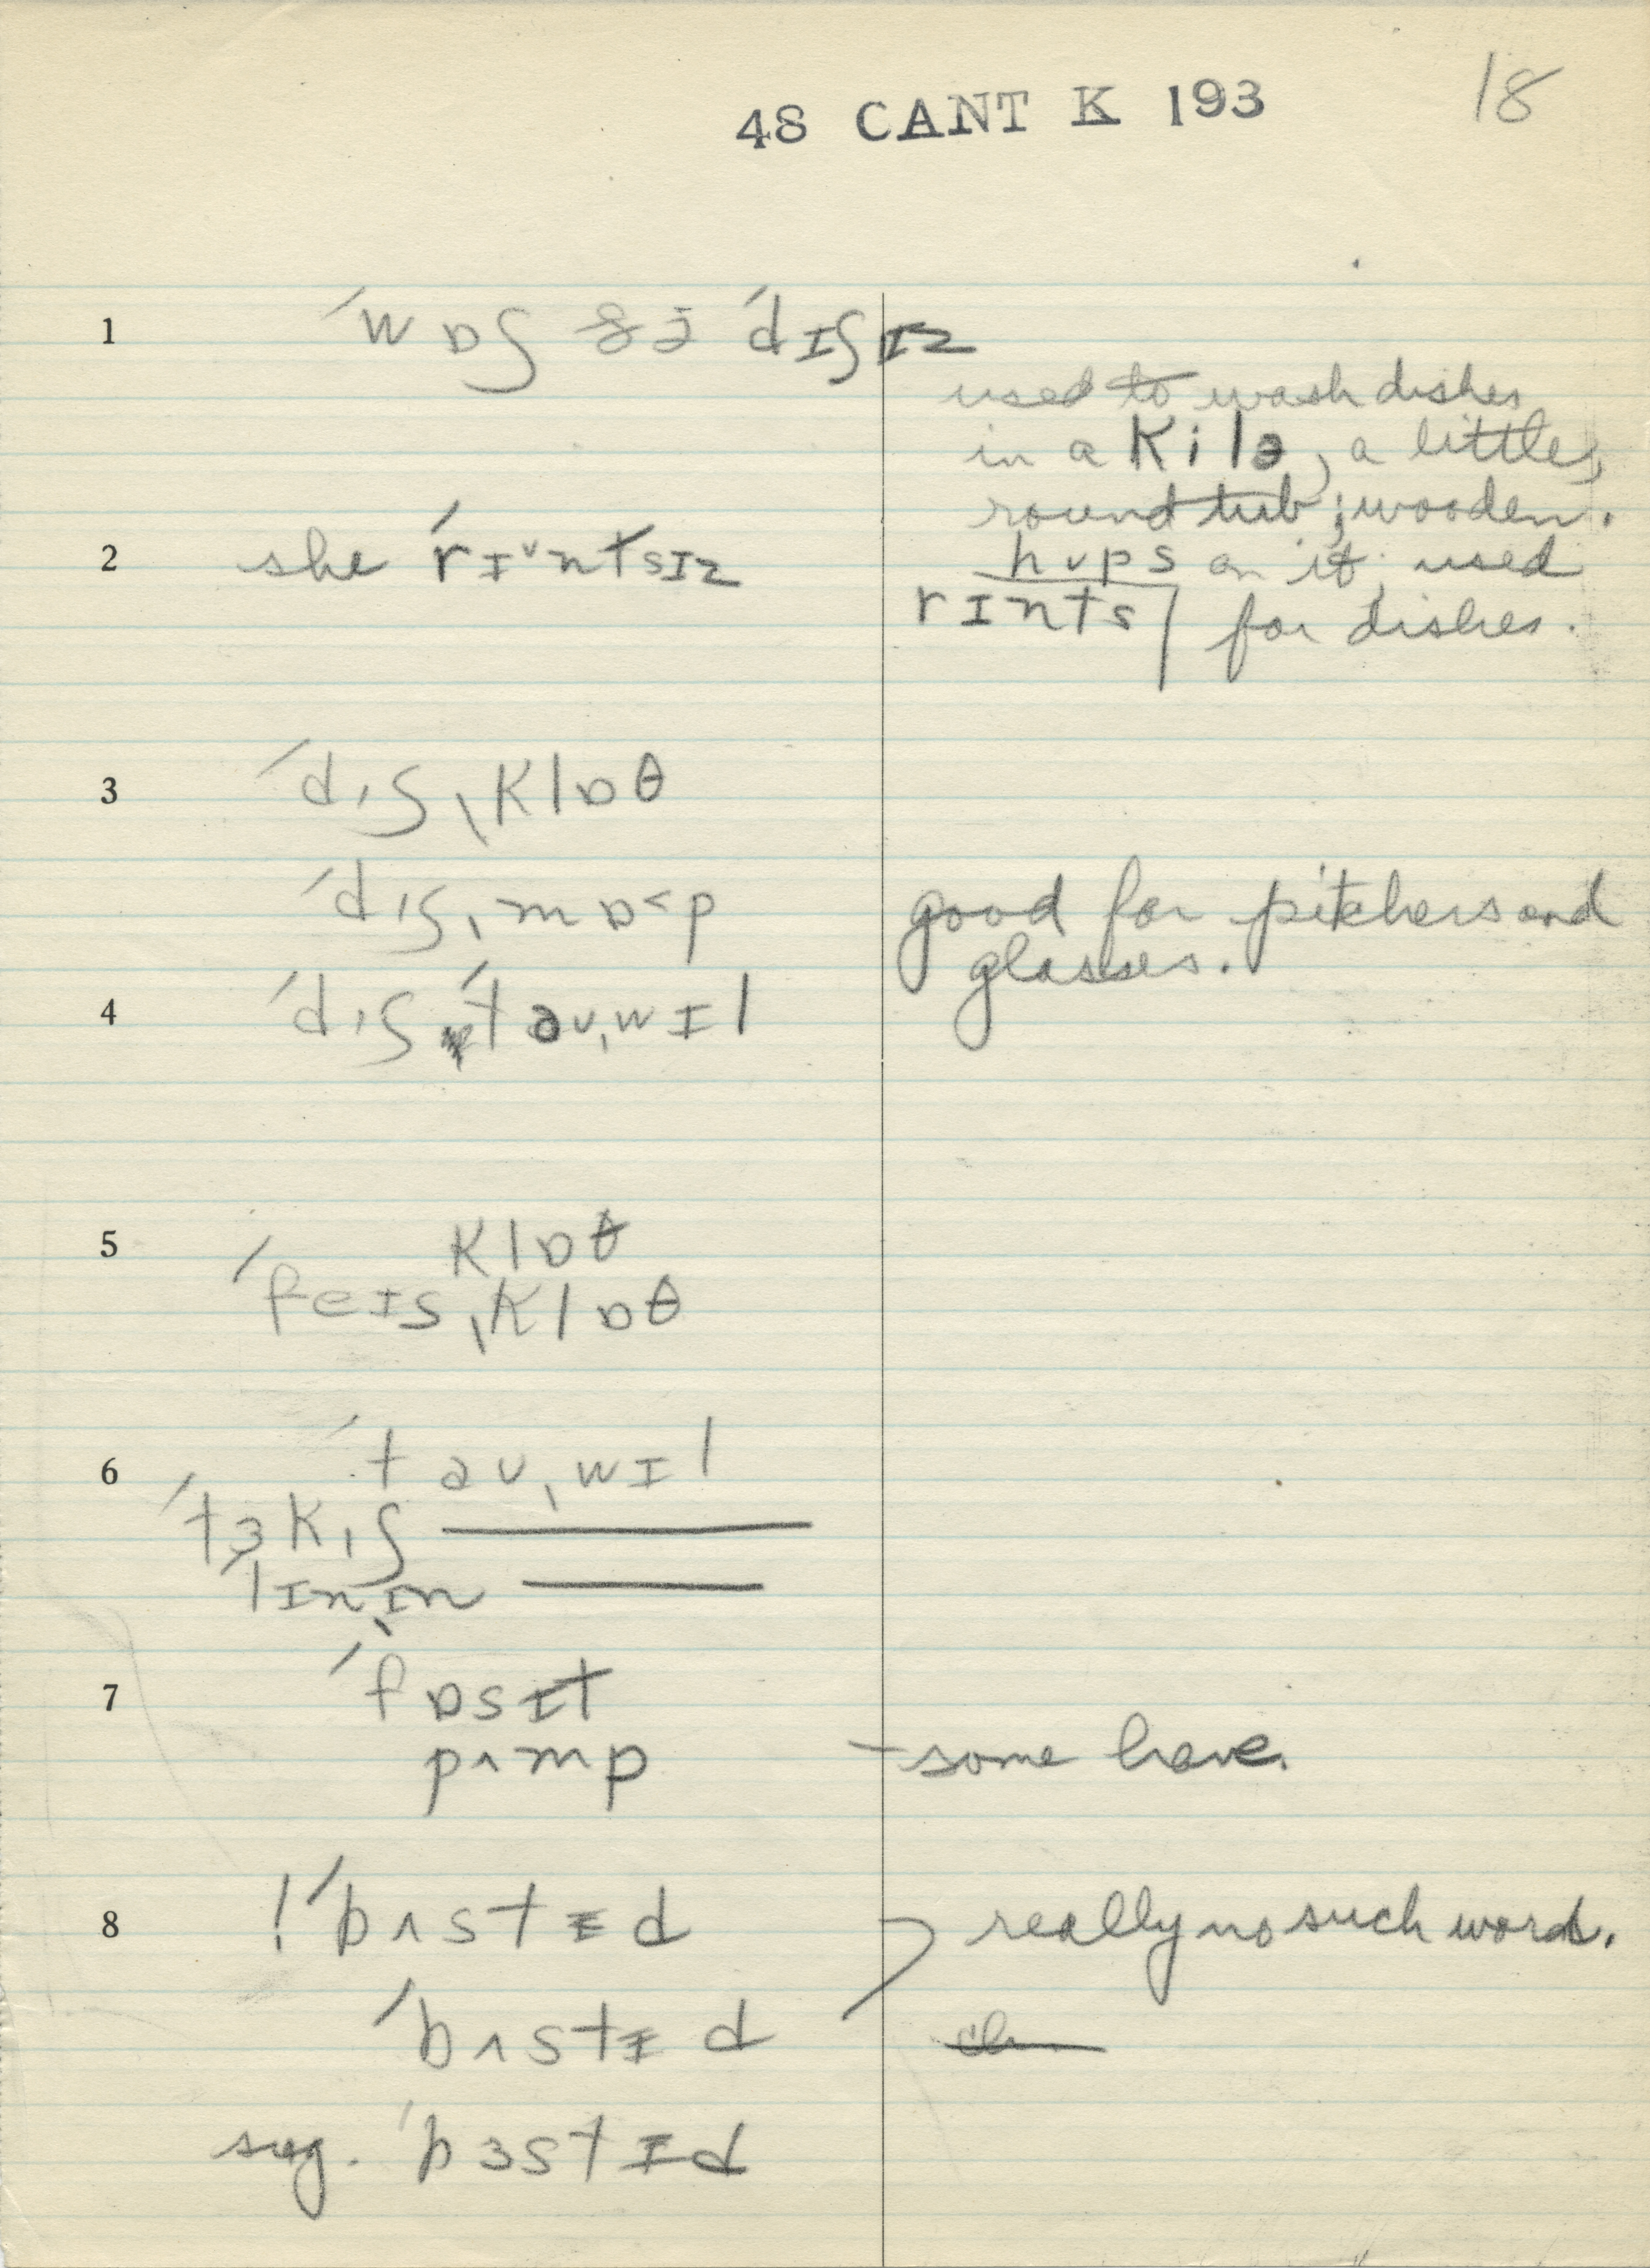 48 CANT K 193
18
1 ˈwɒʃ ðə ˈdɪʃɪz
used to wash dishes
in a kilə, a little,
round tub; wooden.
2 she ˈrɪ˅ntsɪz
hups on it, used
rɪnts for dishes.
3 ˈdɪʃˌklɒθ
ˈdɪʃˌmɒ˂p good for pitchers and
glasses.
4 ˈdɪʃ ˈtəʊˌwɪl
5 klɒθ
ˈfeɪsˌklɒθ
6 ˈtəʊˌwɪl
ˈtɜkˌɪʃ ———
ˈlɪnˌɪn ———
7 ˈfɒsɪt
pʌmp – some have.
8 !ˈbʌstɪd really no such word.
ˈbʌstɪd
sug. ˈbɜstɪd